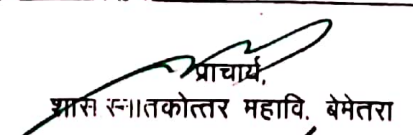 प्राचार्य,
शास स्नातकोत्तर महावि. बेमेतरा